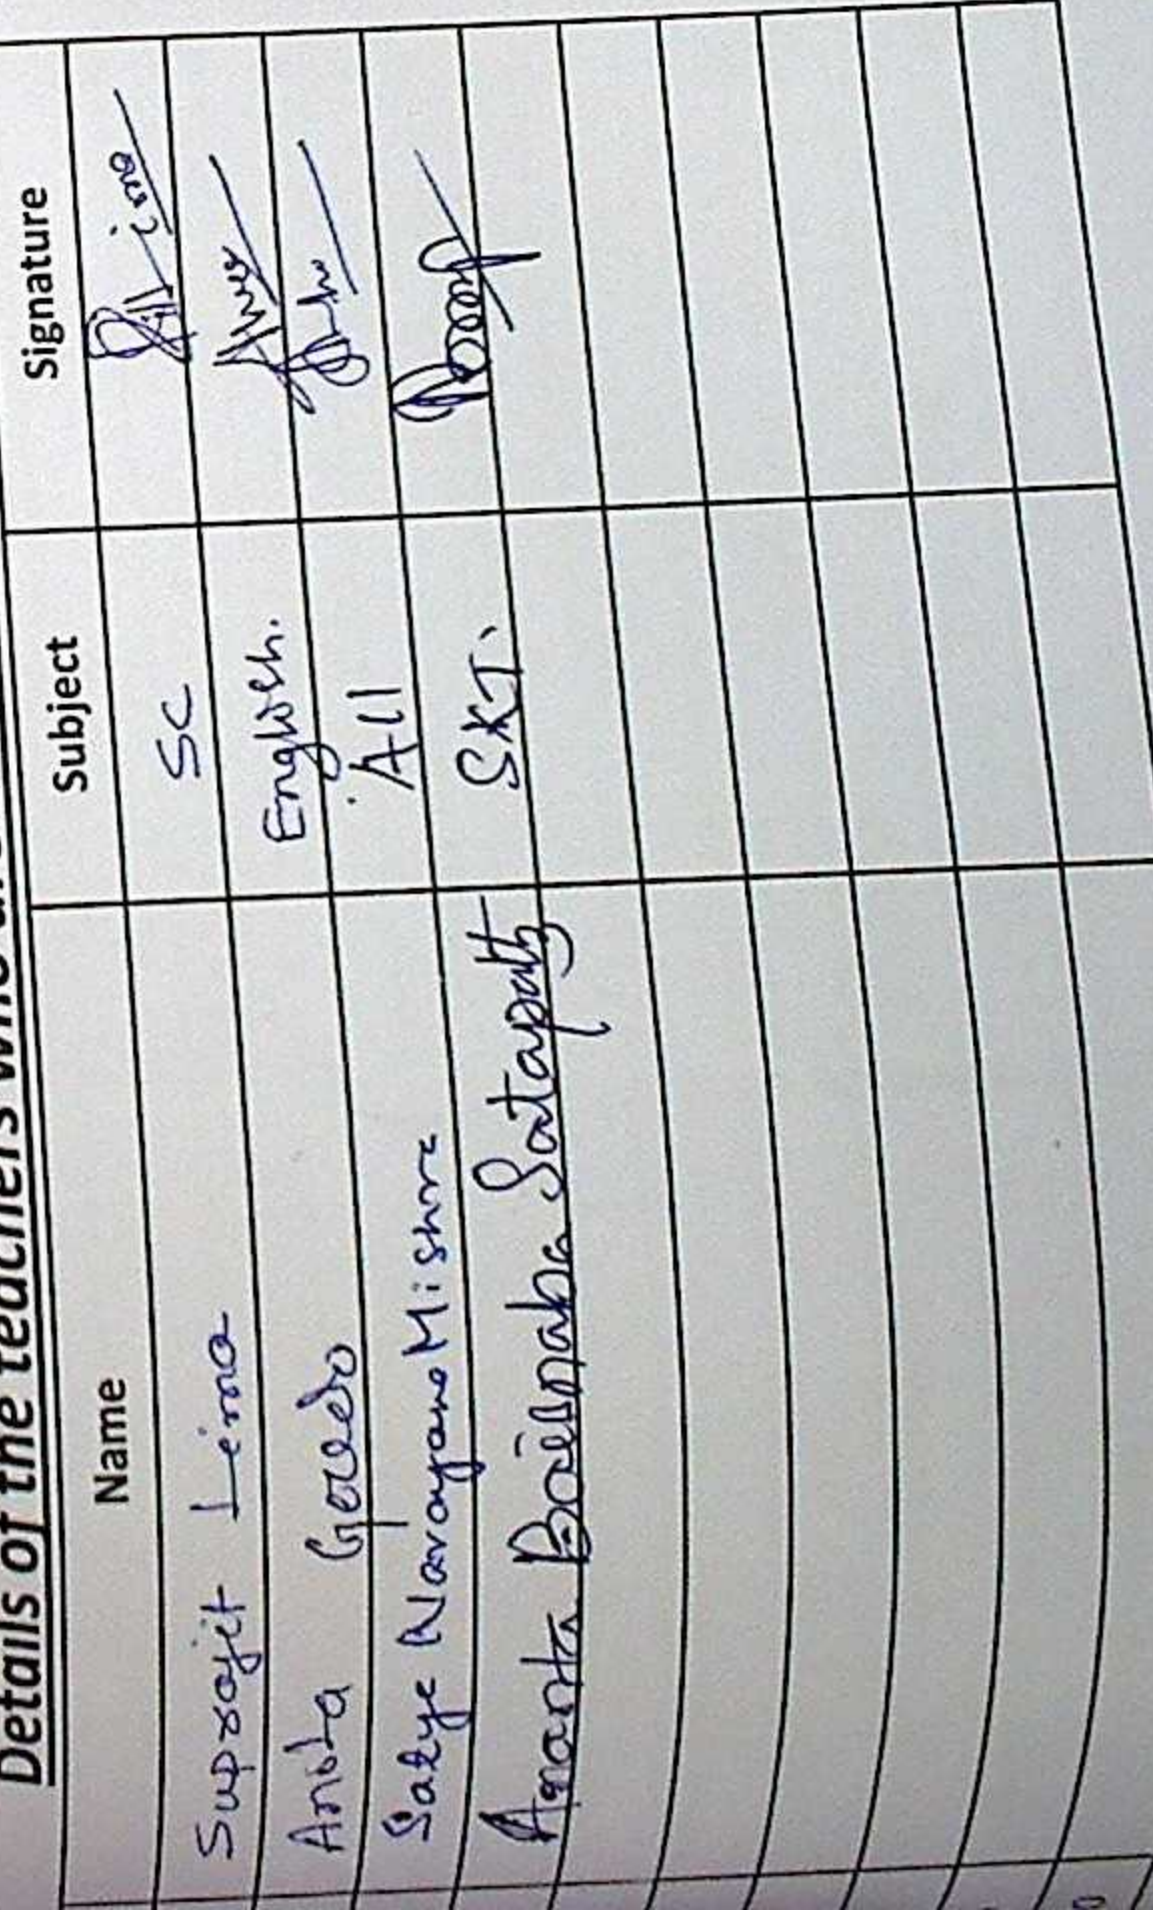 Details of the teachers who are
Name Subject Signature
Suprajit Lima SC
Anita Gouda English.
Satya Narayana Mishra All
Ananta Baisnaba Satapathy SKT.